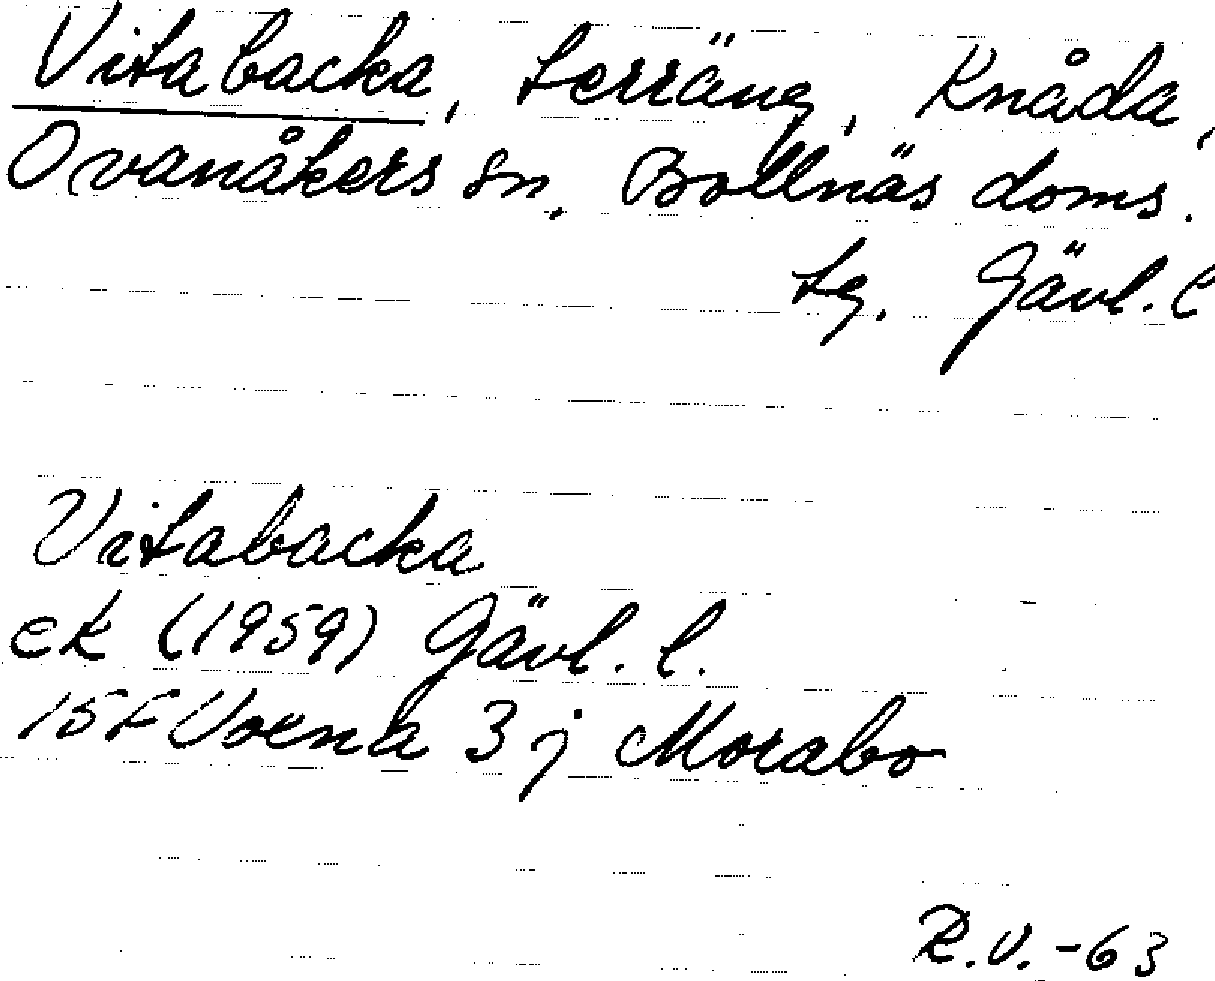 Vitabacka, terräng, Knåda,
Ovanåkers sn. Bollnäs doms.
tg. Gävl. l
Vitabacka
ek (1959) Gävl. l.
15F Voxna 3 j Morabo
R.V. -63